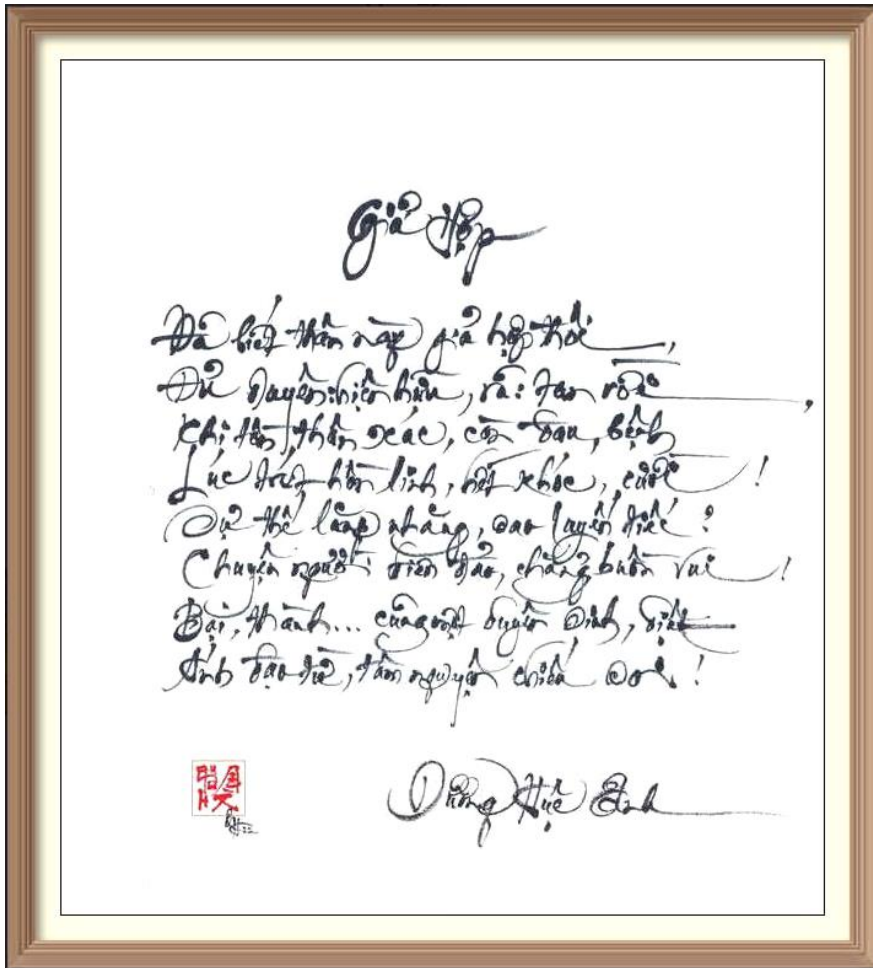 Giả Hợp
Đã biết thân này giả hợp thôi,
Đủ duyên: hiện hữu, rã: tan rồi,
Khi tồn thân xác, còn đau, bệnh
Lúc trút hồn linh, hết khóc, cười!
Sự thế lằng nhằng, sao luyến tiếc?
Chuyện người điên đảo, chẳng buồn vui!
Bại, thành... cũng một duyên sinh, diệt
Ánh đạo từ, tâm nguyện chiếu soi!
Dương Huệ Anh